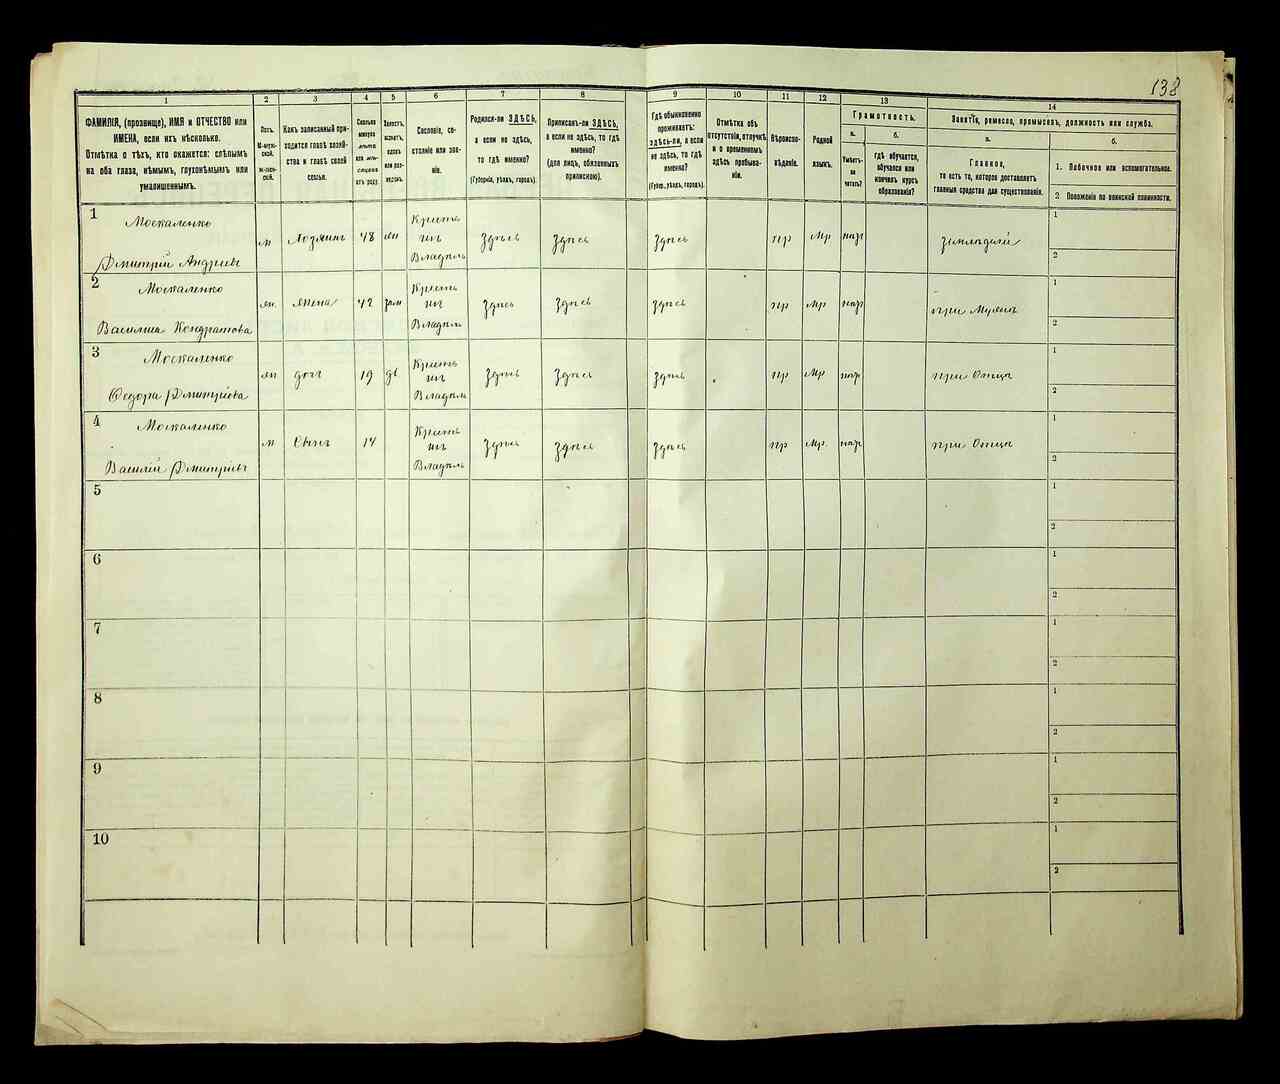 138
1
2
3
4
5
6
7
8
9
10
11
12
13
14
ФАМИЛІЯ, (прозвище), ИМЯ и ОТЧЕСТВО или
ИМЕНА, если ихъ нѣсколько.
Отмѣтка о тѣхъ, кто окажется: слѣпымъ
на оба глаза, нѣмымъ, глухонѣмымъ или
умалишеннымъ.
Полъ.
М-муж-
ской.
Ж-жен-
скій.
Какъ записанный при-
ходится главѣ хозяй-
ства и главѣ своей
семьи.
Сколько
минуло
лѣтъ
или мѣ-
сяцевъ
отъ роду
Холостъ,
женатъ,
вдовъ
или раз-
веденъ.
Сословіе, со-
стояніе или зва-
ніе.
Родился-ли ЗДѢСЬ,
а если не здѣсь,
то гдѣ именно?
(Губернія, уѣздъ, городъ).
Приписанъ-ли ЗДѢСЬ,
а если не здѣсь, то гдѣ
именно?
(для лицъ, обязанныхъ
припискою).
Гдѣ обыкновенно
проживаетъ:
здѣсь-ли, а если
не здѣсь, то гдѣ
именно?
(Губер., уѣздъ, городъ).
Отмѣтка объ
отсутствіи, отлучкѣ
и о временномъ
здѣсь пребыва-
ніи.
Вѣроиспо-
вѣданіе.
Родной
языкъ.
Грамотность.
а.
Умѣетъ-
ли
читать?
б.
гдѣ обучается,
обучался или
кончилъ курсъ
образованія?
Занятіе, ремесло, промыселъ, должность или служба.
а.
Главное,
то есть то, которое доставляетъ
главныя средства для существованія.
б.
1. Побочное или вспомогательное.
2 Положеніе по воинской повинности.
1
Москаленко
Дмитрій Андріевъ
м
Хозяинъ
48
жн
Крестья
нъ
Владѣль
Здѣсь
Здѣсь
Здѣсь
пр
Мр
земледѣлі
1
2
2
Москаленко
Василиса Кондратова
жн
жена
42
зам
Крестья
нъ
Владѣль
Здѣсь
Здѣсь
Здѣсь
пр
Мр
при Мужѣ
1
2
3
Москаленко
Федора Дмитріева
жн
дочь
19
дѣ
Крестья
нъ
Владѣль
Здѣсь
Здѣсь
Здѣсь
пр
Мр
при Отцѣ
1
2
4
Москаленко
Василій Дмитріевъ
м
Сынъ
14
Крестья
нъ
Владѣль
Здѣсь
Здѣсь
Здѣсь
пр
Мр.
при Отцѣ
1
2
5
1
2
6
1
2
7
1
2
8
1
2
9
1
2
10
1
2